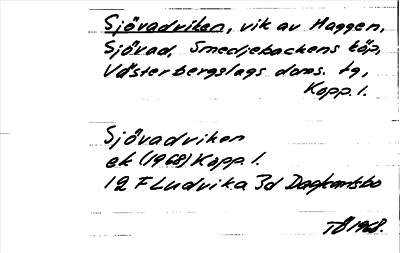 Sjövadviken, vik av Haggen,
Sjövad, Smedjebackens köp,
Västerbergslags doms. tg,
Kopp. l.
Sjövadviken
ek (1968) Kopp. l.
12 F Ludvika 3d
TÖ 1968.